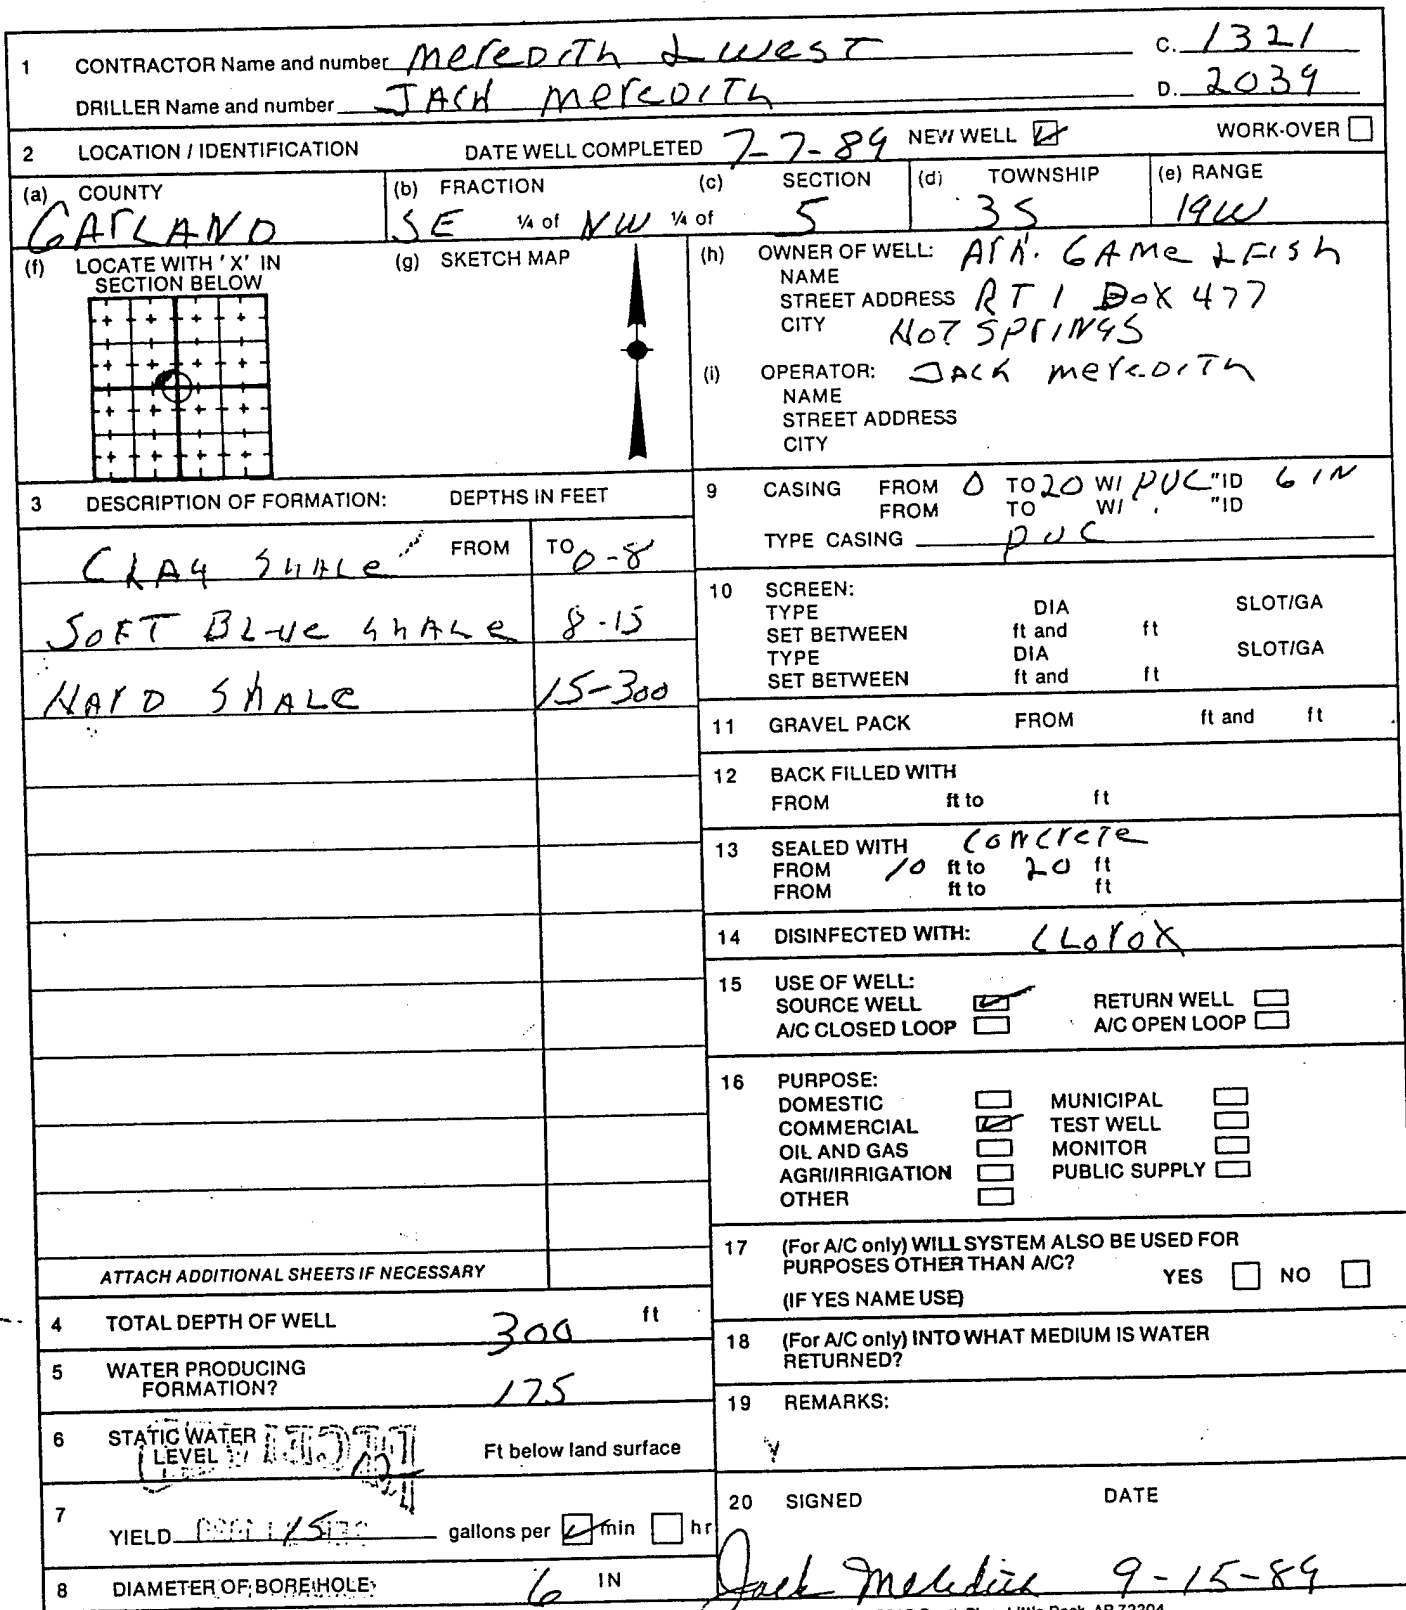 1 CONTRACTOR Name and number Meredith & West C. 1321
DRILLER Name and number Jack Meredith D. 2039
2 LOCATION / IDENTIFICATION DATE WELL COMPLETED 7-7-89 NEW WELL WORK-OVER
(a) COUNTY (b) FRACTION (c) SECTION (d) TOWNSHIP (e) RANGE
GARLAND SE ¼ of NW ¼ of 5 3S 19W
(f) LOCATE WITH 'X' IN
SECTION BELOW
(g) SKETCH MAP
(h) OWNER OF WELL: Ark. Game & Fish
NAME
STREET ADDRESS RT 1 Box 477
CITY Hot Springs
(i) OPERATOR: Jack Meredith
NAME
STREET ADDRESS
CITY
3 DESCRIPTION OF FORMATION: DEPTHS IN FEET
FROM TO
Clay Shale 0-8
Soft Blue Shale 8-15
Hard Shale 15-300
ATTACH ADDITIONAL SHEETS IF NECESSARY
4 TOTAL DEPTH OF WELL 300 ft
5 WATER PRODUCING
FORMATION? 175
6 STATIC WATER
LEVEL Ft below land surface
7 YIELD 15 gallons per min hr
8 DIAMETER OF BORE HOLE: 6 IN
9 CASING FROM 0 TO 20 W/ PVC "ID 6 IN
FROM TO W/ "ID
TYPE CASING PVC
10 SCREEN:
TYPE DIA SLOT/GA
SET BETWEEN ft and ft
TYPE DIA SLOT/GA
SET BETWEEN ft and ft
11 GRAVEL PACK FROM ft and ft
12 BACK FILLED WITH
FROM ft to ft
13 SEALED WITH Concrete
FROM 10 ft to 20 ft
FROM ft to ft
14 DISINFECTED WITH: Clorox
15 USE OF WELL:
SOURCE WELL RETURN WELL
A/C CLOSED LOOP A/C OPEN LOOP
16 PURPOSE:
DOMESTIC MUNICIPAL
COMMERCIAL TEST WELL
OIL AND GAS MONITOR
AGRI/IRRIGATION PUBLIC SUPPLY
OTHER
17 (For A/C only) WILL SYSTEM ALSO BE USED FOR
PURPOSES OTHER THAN A/C? YES NO
(IF YES NAME USE)
18 (For A/C only) INTO WHAT MEDIUM IS WATER
RETURNED?
19 REMARKS:
20 SIGNED DATE
Jack Meredith 9-15-89